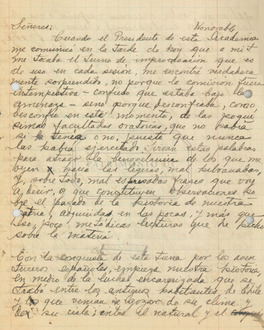 Señores:
Cuando el Presidente de esta Academia
me comunicó en la tarde de hoy que a mí
me tocaba el turno de improvisación que es
de uso en cada sesión, me encontré verdadera-
mente sorprendido, no porque la comisión fuera
intempestiva - confieso que estaba bajo la
- sino porque desconfiaba, como
desconfío en este momento, de las poquí-
simas facultades oratorias, que no había
si tenía o no, puesto que nunca
las había ejercitado. Eran estas palabras
para atraer la benevolencia de los que me
oyen hacia las ligeras, mal
y, sobre todo, mal frases que voy
a decir, a que constituyen observaciones so-
bre el pasado de la historia de nuestra
patria, adquiridas en las pocas, y más que
eso, poco metódicas lecturas que he hecho
sobre la materia.
Con la conquista de esta tierra por los aven-
tureros españoles, empieza nuestra historia,
en medio de la lucha encarnizada que se
trabó entre los antiguos habitantes de Chile
y los que venían a gozar de su clima y
de su suelo; entre el natural y el